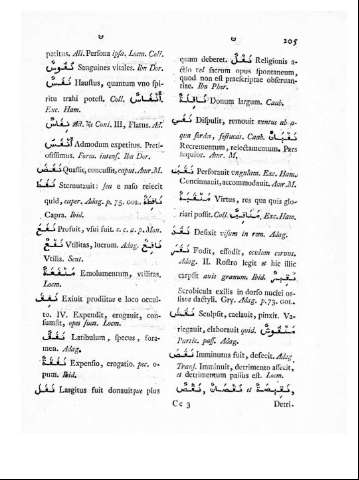 205
petitus. All. Persona ipsa. Locm. Coll.
نفوس Sanguines vitales. Ibn Dor.
نفس Haustus, quantum vno spi-
ritu trahi potest. Coll. أنفاس.
Exc. Ham.
Act. &
Coni. III, Flatus.
أنفس Admodum expetitus. Preti-
osissimus. Form. intens. Ibn Dor.
نفض Quassit, concussit, caput. Aur. M.
نفط Sternutauit: seu e naso reiecit
quid, caper. Adag. p. 75. 001.
Capra. Ibid.
نفع Profuit, vsui fuit. c. c. a. p. Man.
نفع Vtilitas, lucrum. Adag. نافع
Vtilis. Sent.
منفعة Emolumentum, vtilitas.
Locm.
نفق Exiuit prodiitue e loco occul-
to. IV. Expendit, erogauit, con-
sumsit, opes suas. Locm.
نفق Latibulum, specus, fora-
men. Adag.
نفقة Expensio, erogatio. pec. o-
pum. Ibid.
نفل Largitus fuit donauitque plus
quam deberet. نفل Religionis a-
ctio vel sacrum opus spontaneum,
quod non est praescriptae obseruan-
tiae. Ibn Phar.
نافلة Donum largum. Caab.
نفى Dispulit, remouit ventus ab a-
qua sordes, festucas. Caab.
Recrementum, reiectamentum. Pars
sequior. Aur. M.
نقب Perforauit vngulam. Exc. Ham.
Concinnauit, accommodauit. Aur. M.
منقبة Virtus, res qua quis glo-
riari possit. Coll. مناقب. Exc. Ham.
نقد Defixit visum in rem. Adag.
نقر Fodit, effodit, oculum coruus.
Adag. II. Rostro legit et hic illic
carpsit auis granum. Ibid.
Scrobicula exilis in dorso nuclei os-
sisue dactyli. Gry. Adag. p. 73. 001.
نقش Sculpsit, caelauit, pinxit. Va-
riegauit, elaborauit quid. منقوش
Partic. pass. Adag.
نقص Imminutus fuit, defecit. Adag.
Trans. Imminuit, detrimento affecit,
et detrimentum passus est. Locm.
نقص, نقصان et نقيصة,
Cc 3 Detri-